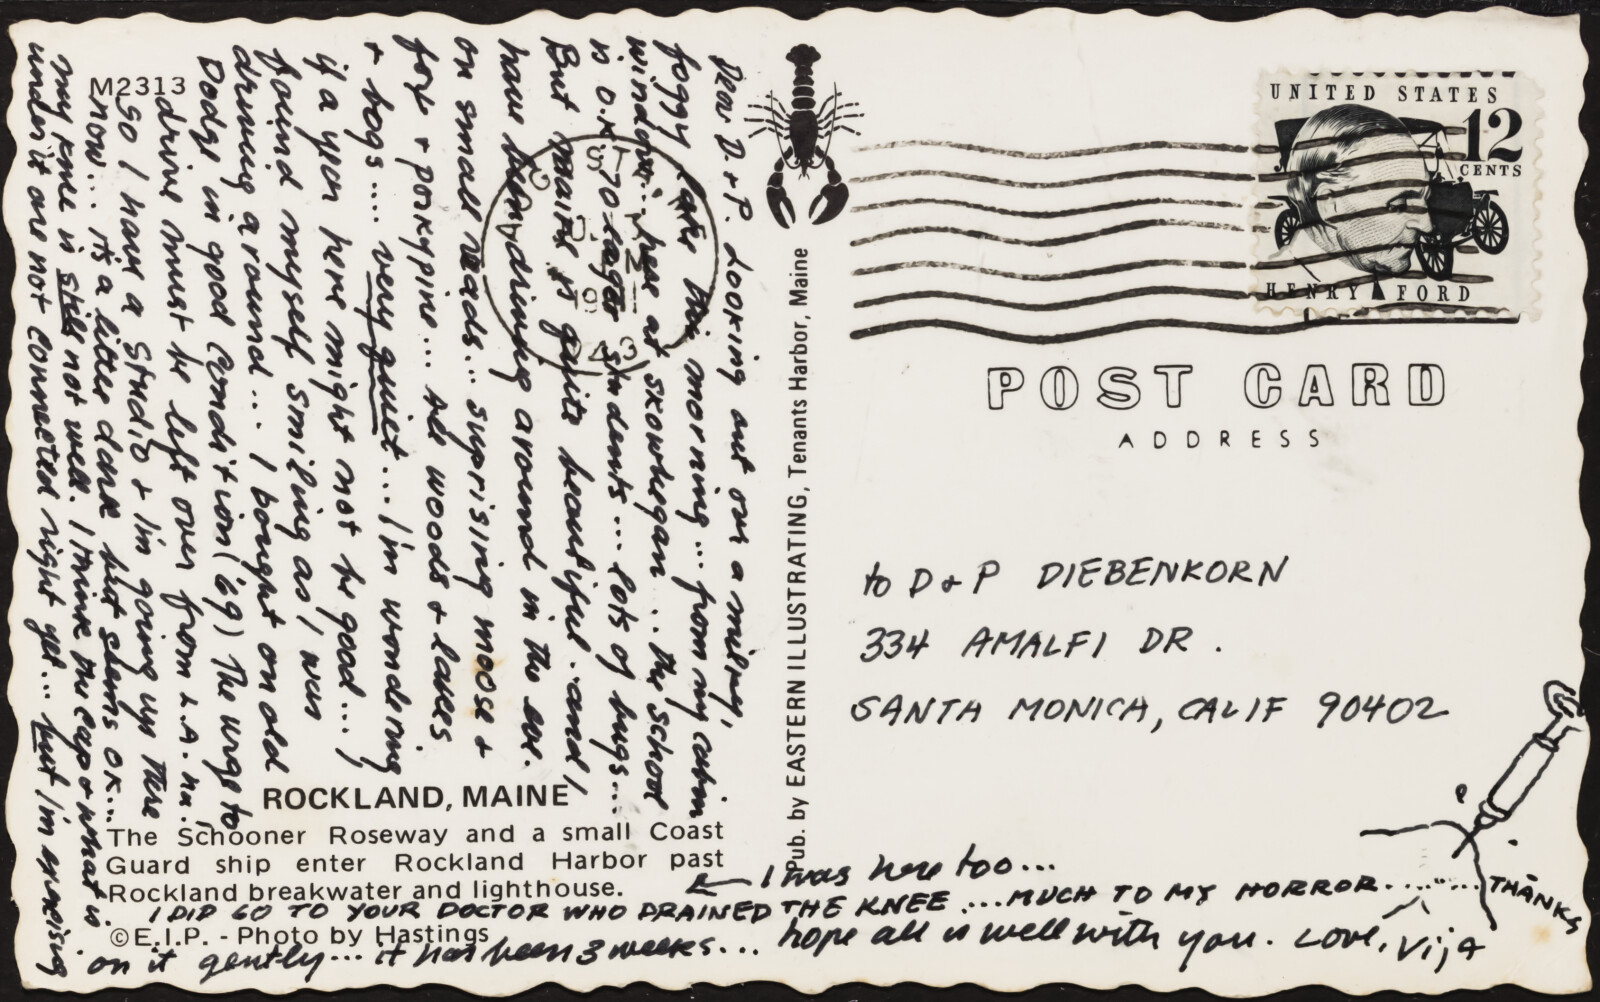 M2313
Dear D. + P. Looking out on a milky,
foggy lake this morning... from my cabin
window.. here at skowhegan... the school
is o.k. 70 eager students... lots of bugs...
But maine is quite beautiful. and I
have been driving around in the eve.
on small roads... suprising moose +
fox + porkypine... All woods + lakes
+ bogs.... very quiet... I'm wondering
if a year here might not be good.... I
found myself smiling as I was
driving around... I bought an old
Dodge in good condition ('69) The urge to
drive must be left over from L.A. no?
So I have a studio + I'm going up there
now... its a little dark but seems ok...
my knee is still not well. I think the cap + what is
under it are not connected right yet... but I'm exercising
on it gently... it has been 3 weeks... hope all is well with you. Love, Vija
I DID GO TO YOUR DOCTOR WHO DRAINED THE KNEE ....MUCH TO MY HORROR........ THANKS
I was here too...
ROCKLAND, MAINE
The Schooner Roseway and a small Coast
Guard ship enter Rockland Harbor past
Rockland breakwater and lighthouse.
©E.I.P. - Photo by Hastings
Pub. by EASTERN ILLUSTRATING, Tenants Harbor, Maine
UNITED STATES
12
CENTS
HENRY FORD
POST CARD
ADDRESS
to D + P DIEBENKORN
334 AMALFI DR.
SANTA MONICA, CALIF 90402